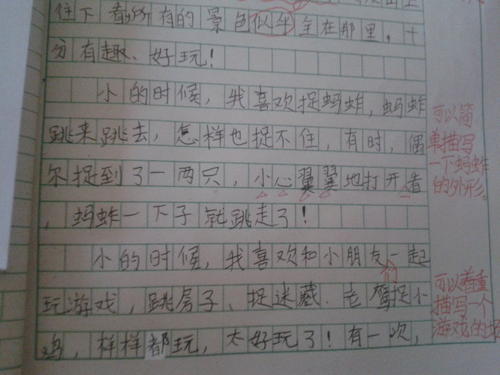 往下看，所有的景色似乎全在那里。十
分有趣、好玩！
小的时候，我喜欢捉蚂蚱，蚂蚱
跳来跳去，怎样也捉不住，有时，偶
尔捉到了一两只，小心翼翼地打开看
，蚂蚱一下子就跳走了！
小的时候，我喜欢和小朋友一起
玩游戏，跳房子、捉迷藏、老鹰捉小
鸡，样样都玩，太好玩了！有一次，
可以简
单描写
一下蚂蚱
的外形。
可以着重
描写一个
游戏的